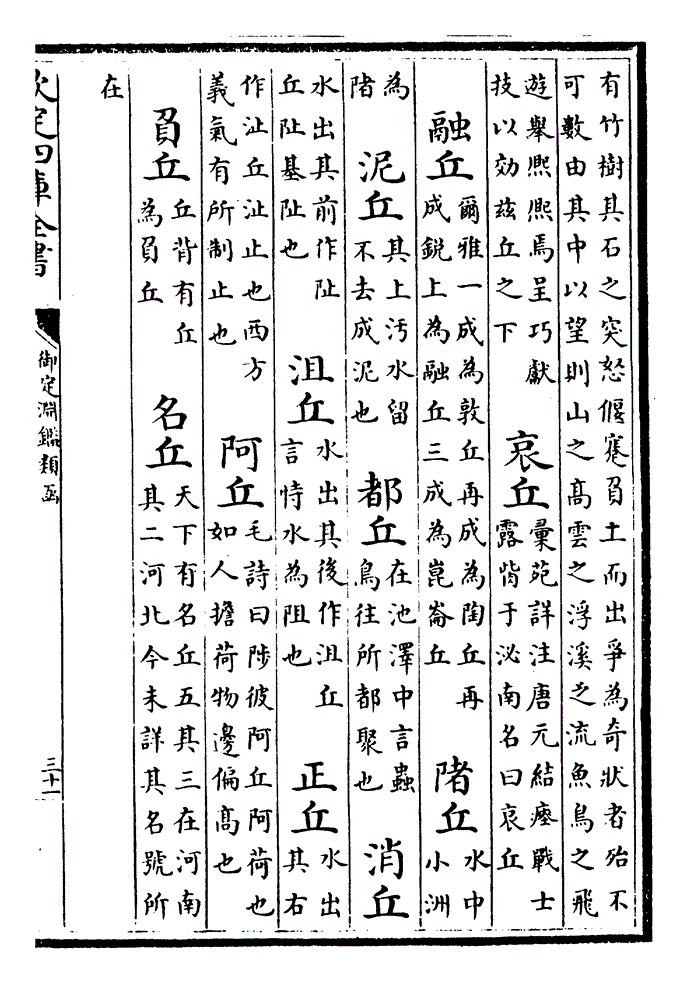 有竹樹其石之突怒偃蹇負土而出爭為奇狀者殆不
可數由其中以望則山之高雲之浮溪之流魚鳥之飛
遊舉熙熙焉呈巧獻
技以効茲丘之下
哀丘
彚苑詳注唐元結瘞戰士
露胔于泌南名曰哀丘
融丘
爾雅一成為敦丘再成為陶丘再
成銳上為融丘三成為崑崙丘
陼丘
水中
小洲
為
陼
泥丘
其上汚水留
不去成泥也
都丘
在池澤中言蟲
鳥往所都聚也
消丘
水出其前作阯
丘阯基阯也
沮丘
水出其後作沮丘
言恃水為阻也
正丘
水出
其右
作沚丘沚止也西方
義氣有所制止也
阿丘
毛詩曰陟彼阿丘阿荷也
如人擔荷物邊偏高也
負丘
丘背有丘
為負丘
名丘
天下有名丘五其三在河南
其二河北今未詳其名號所
在
欽定四庫全書
御定淵鑑類函
三十一